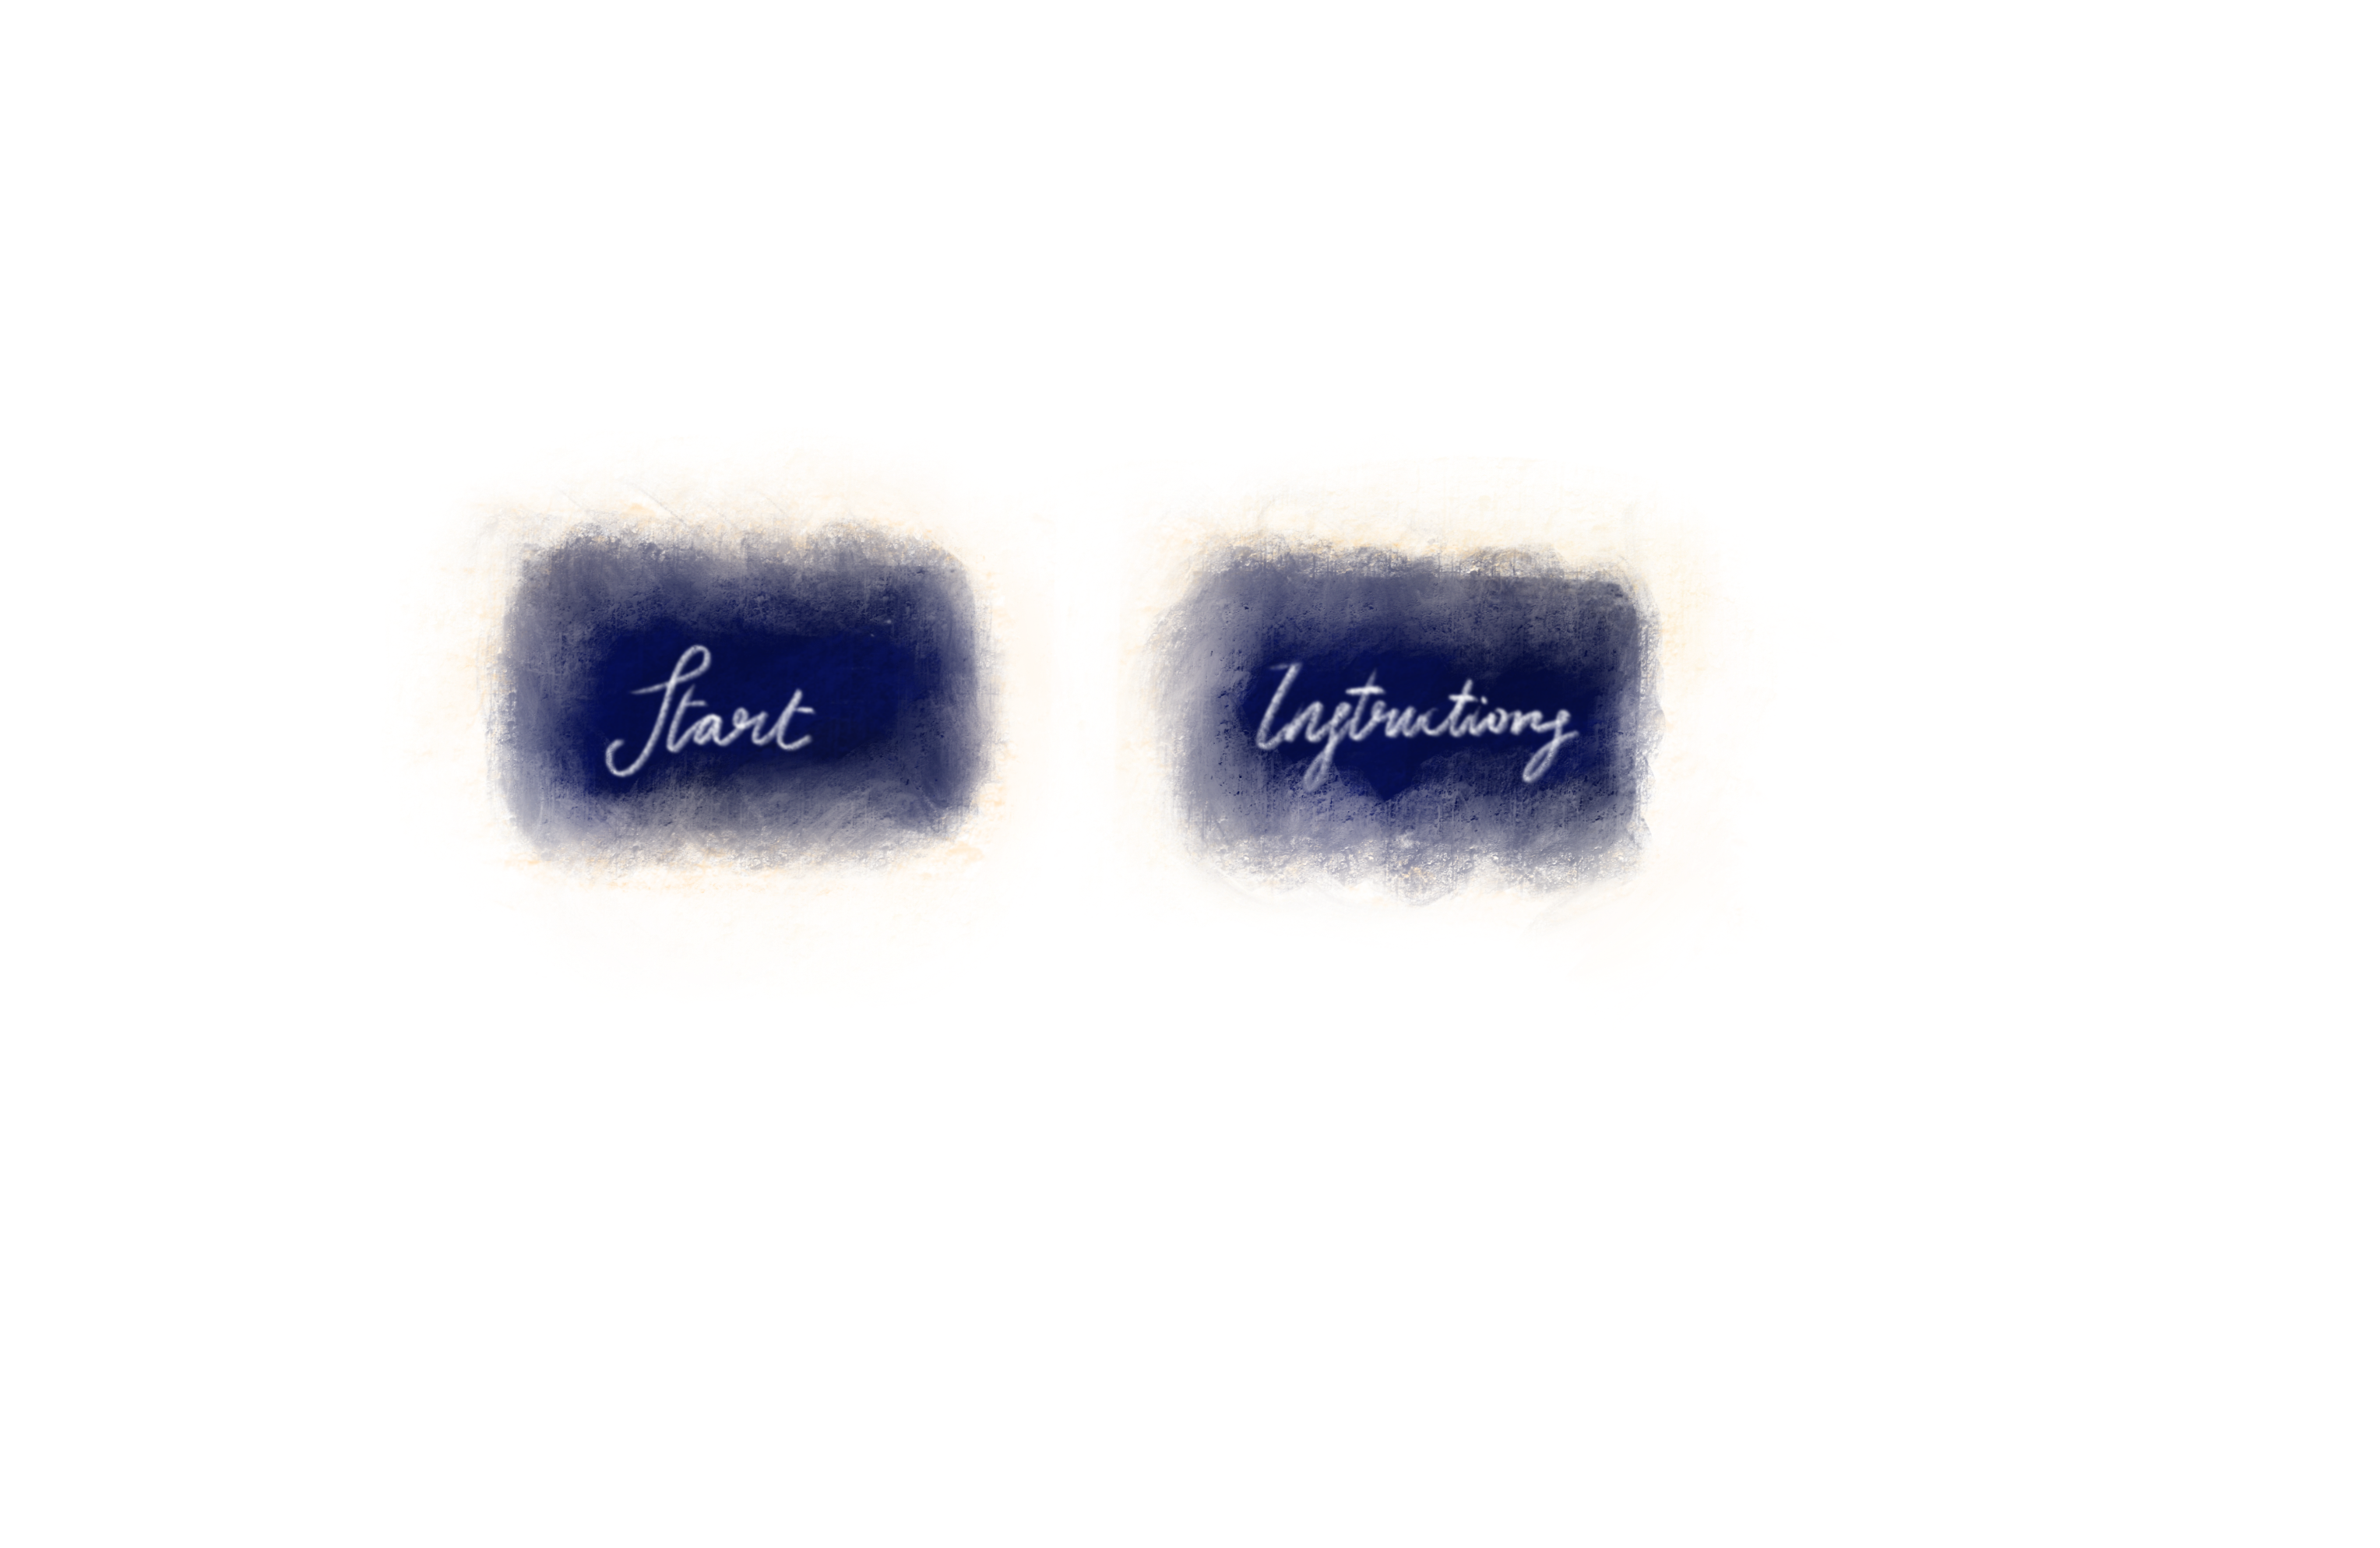 Start
Instructions